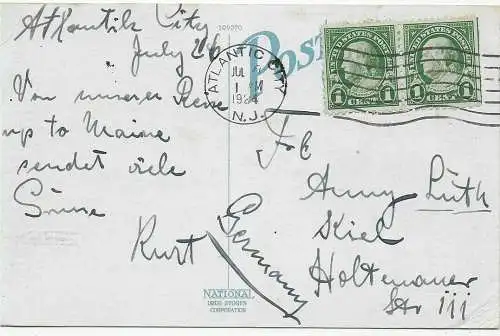 Atlantik City
July 26
Von unserer Reise
up to Maine
sendet viele
Grüsse
Kurt
109970
POST
ATLANTIC CITY
JUL
1 M
1924
N.J.
UNITED STATES POSTAGE
1 CENT 1
UNITED STATES POSTAGE
1 CENT 1
Anny Lüth
Kiel
Holtenauer
Str 111
Germany
NATIONAL
DRUG STORES
CORPORATION